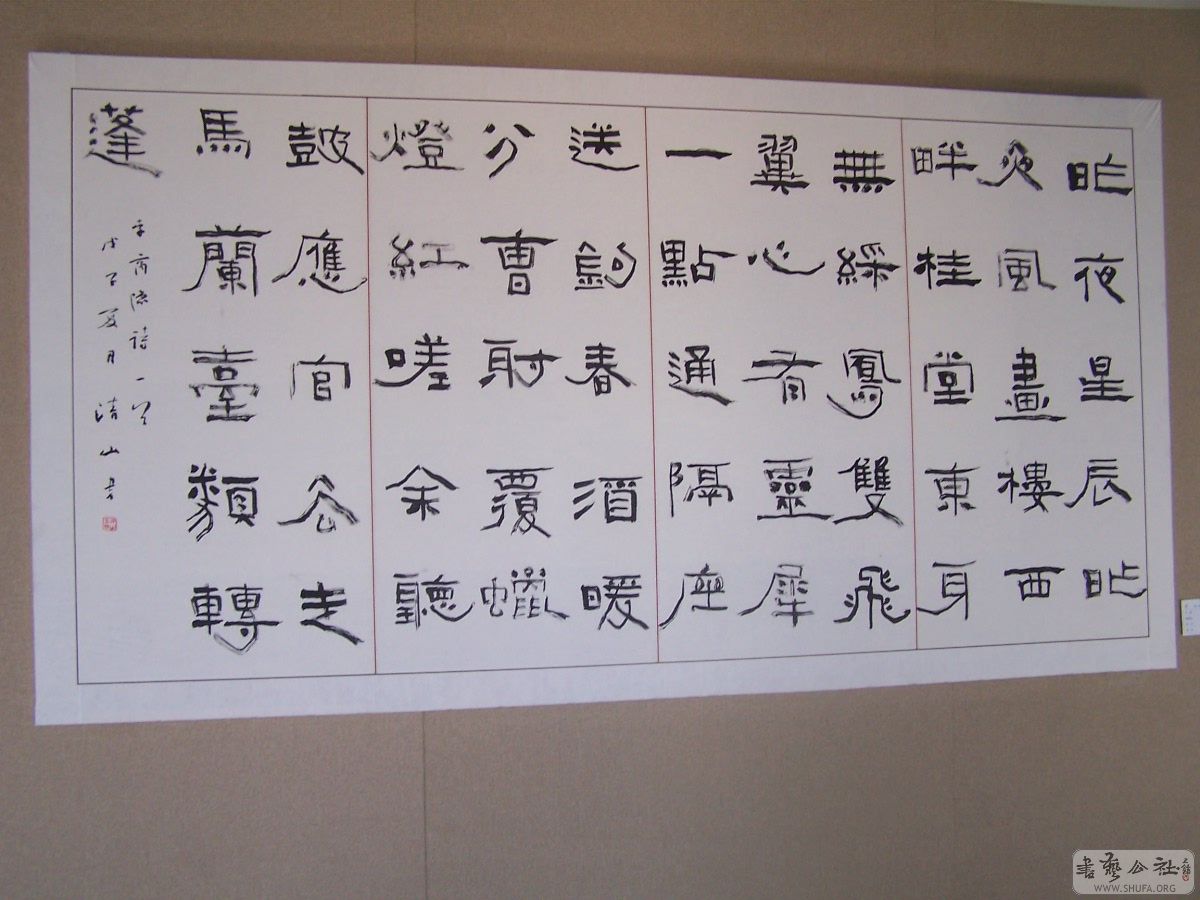 昨夜星辰昨
夜風畫樓西
畔桂堂東身
無綵鳳雙飛
翼心有靈犀
一點通隔座
送鉤春酒暖
分曹射覆蠟
燈紅嗟余聽
鼓應官去走
馬蘭臺類轉
蓬
李商隱詩一首
戊子夏月 清山書
書藝公社
WWW.SHUFA.ORG